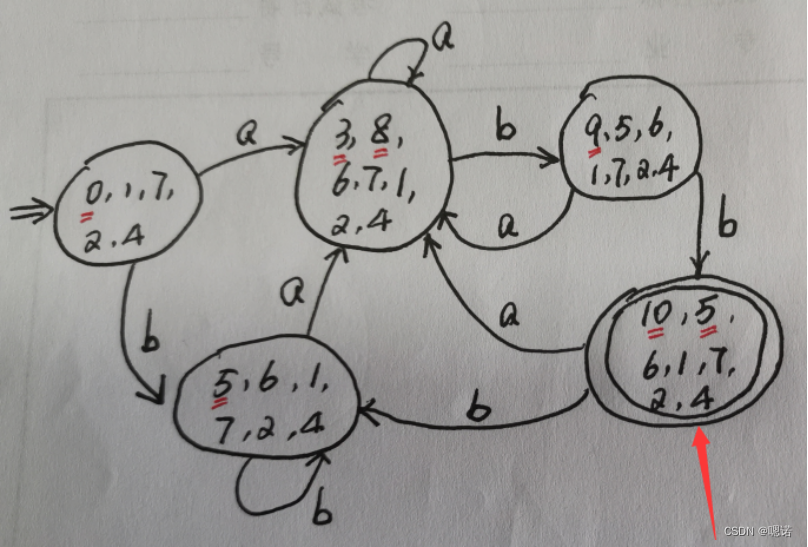 a
0,1,7,
2.4
a
3,8,
6,7,1,
2,4
b
9,5,6,
1,7,2,4
a
b
b
a
a
10,5,
6,1,7,
2,4
5,6,1,
7,2,4
b
b
CSDN @嗯诺